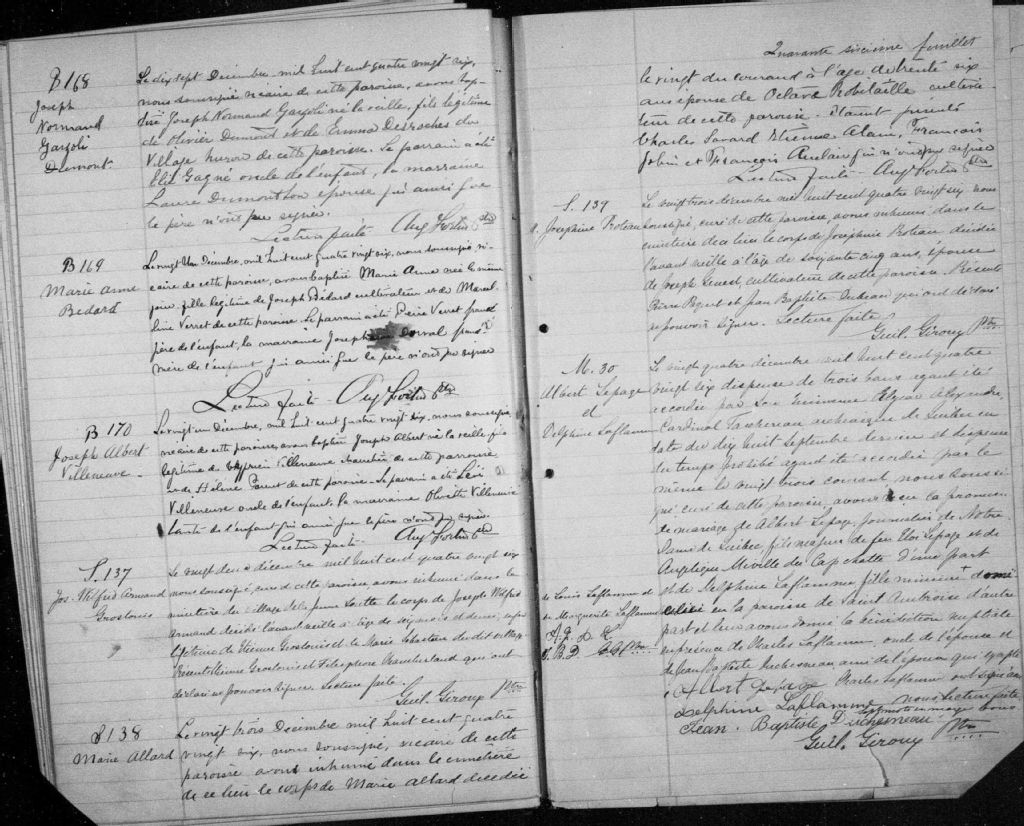 B 168
Joseph
Normand
Gazoli
Dumont.
Le dix sept Decembre mil huit cent quatre vingt six,
nous soussigné vicaire de cette paroisse, avons bap-
tisé Joseph Normand Gazoli né la veille, fils légitime
de Olivier Dumont et de Emma Desroches du
Village huron de cette paroisse. Le parrain a été
Elie Gagné oncle de l'enfant, la marraine
Laure Dumont son epouse qui ainsi que
le père n'ont pu signer.
Lecture faite Aug Fortier Ptre
B 169
Marie Anne
Bedard
Le vingt Un Décembre, mil huit cent quatre vingt six, nous soussigné vi-
caire de cette paroisse, avons baptisé Marie Anne née le même
jour, fille legitime de Joseph Bédard cultivateur et de Marcel-
line Verret de cette paroisse. Le parrain a été Pierre Verret grand
père de l'enfant, la marraine Dorval grand
mère de l'enfant qui ainsi que le père n'ont pu signer
Lecture faite - Aug Fortier Ptre
B 170
Joseph Albert
Villeneuve
Le vingt un Décembre, mil huit cent quatre vingt six, nous soussigné,
vicaire de cette paroisse, avons baptisé Joseph Albert né la veille, fils
legitime de Villeneuve de cette paroisse
et de Hélène Parent de cette paroisse - Le parrain a été Léri
Villeneuve oncle de l'enfant, la marraine Olivette Villeneuve
tante de l'enfant qui ainsi que le père n'ont pu signer.
Lecture faite - Aug Fortier Ptre
S. 137
Jos. Wilfrid Armand
Groslouis
Le vingt deux décembre mil huit cent quatre vingt six
nous soussigné, curé de cette paroisse avons inhumé dans le
cimetière du village de la jeune Lorette le corps de Joseph Wilfrid
Armand décédé l'avant veille à l'âge de six mois et demi, enfant
légitime de Etienne Groslouis et de Marie Sebastien du dit village
Présents Etienne Groslouis et Télesphore Chamberland qui ont
déclaré ne pouvoir signer. Lecture faite.
Guil. Giroux Ptre
S 138
Marie Allard
Le vingt trois Decembre mil huit cent quatre
vingt six, nous soussigné, vicaire de cette
paroisse avons inhumé dans le cimetière
de ce lieu le corps de Marie Allard decedée
Quarante sixième feuillet
le vingt du courand à l'age de trente six
ans épouse de Octave Robitaille cultiva-
teur de cette paroisse. Etaient présents
Charles Savard Etienne Alain, François
Jobin et François Auclair qui n'ont pu signer
Lecture faite - Aug Fortier Ptre
S. 139
Josephine Proteau
Le vingt trois décembre mil huit cent quatre vingt six nous
soussigné, curé de cette paroisse, avons inhumé dans le
cimetière de ce lieu le corps de Josephine Proteau décédée
l'avant veille à l'âge de soixante cinq ans, épouse
de Joseph Genest, cultivateur de cette paroisse. Présents
Pierre et Jean Baptiste qui ont déclaré
ne pouvoir signer. Lecture faite
Guil. Giroux Ptre
M. 30
Albert Lepage
et
Delphine Laflamme
Le vingt quatre décembre mil huit cent quatre
vingt six dispense de trois bans ayant été
accordée par Son Eminence Elzéar Alexandre,
Cardinal Taschereau archevêque de Québec en
date du dix huit Septembre dernier et dispense
du temps prohibé ayant été accordée par le
même le vingt trois courant, nous soussi-
gné curé de cette paroisse, avons reçu la promesse
de mariage de Albert Lepage, journalier de Notre
Dame de Québec, fils majeur de feu Eloi Lepage et de
Angélique Miville du Cap chatte d'une part
et de Delphine Laflamme fille mineure + domi
ciliée en la paroisse de Saint Ambroise d'autre
part et leur avons donné la bénédiction nuptiale
en présence de Charles Laflamme, oncle de l'épouse et
de Jean Baptiste Duchesneau ami de l'époux qui
Charles Laflamme ont signé avec
nous Lecture faite
de Louis Laflamme et
de Marguerite Laflamme
A. L. D. L.
J. B. D. G.G. Ptre
Albert Lepage
Delphine Laflamme
Jean. Baptiste Duchesneau
Guil. Giroux Ptre